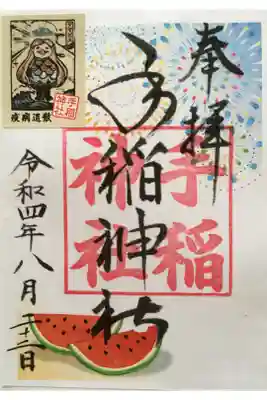 奉拝
手稲神社
手稲
神社
令和四年八月二十二日
疫病退散